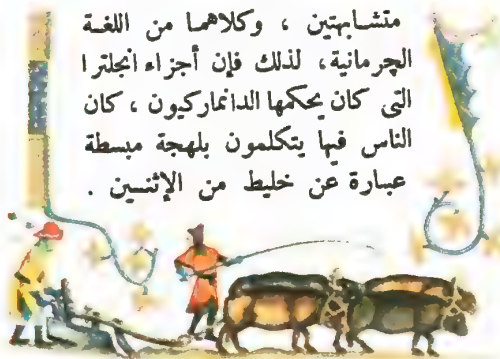 متشابهتين ، وكلاهما من اللغة
الجرمانية ، لذلك فإن أجزاء انجلترا
التى كان يحكمها الدانماركيون ، كان
الناس فيها يتكلمون بلهجة مبسطة
عبارة عن خليط من الإثنسين .